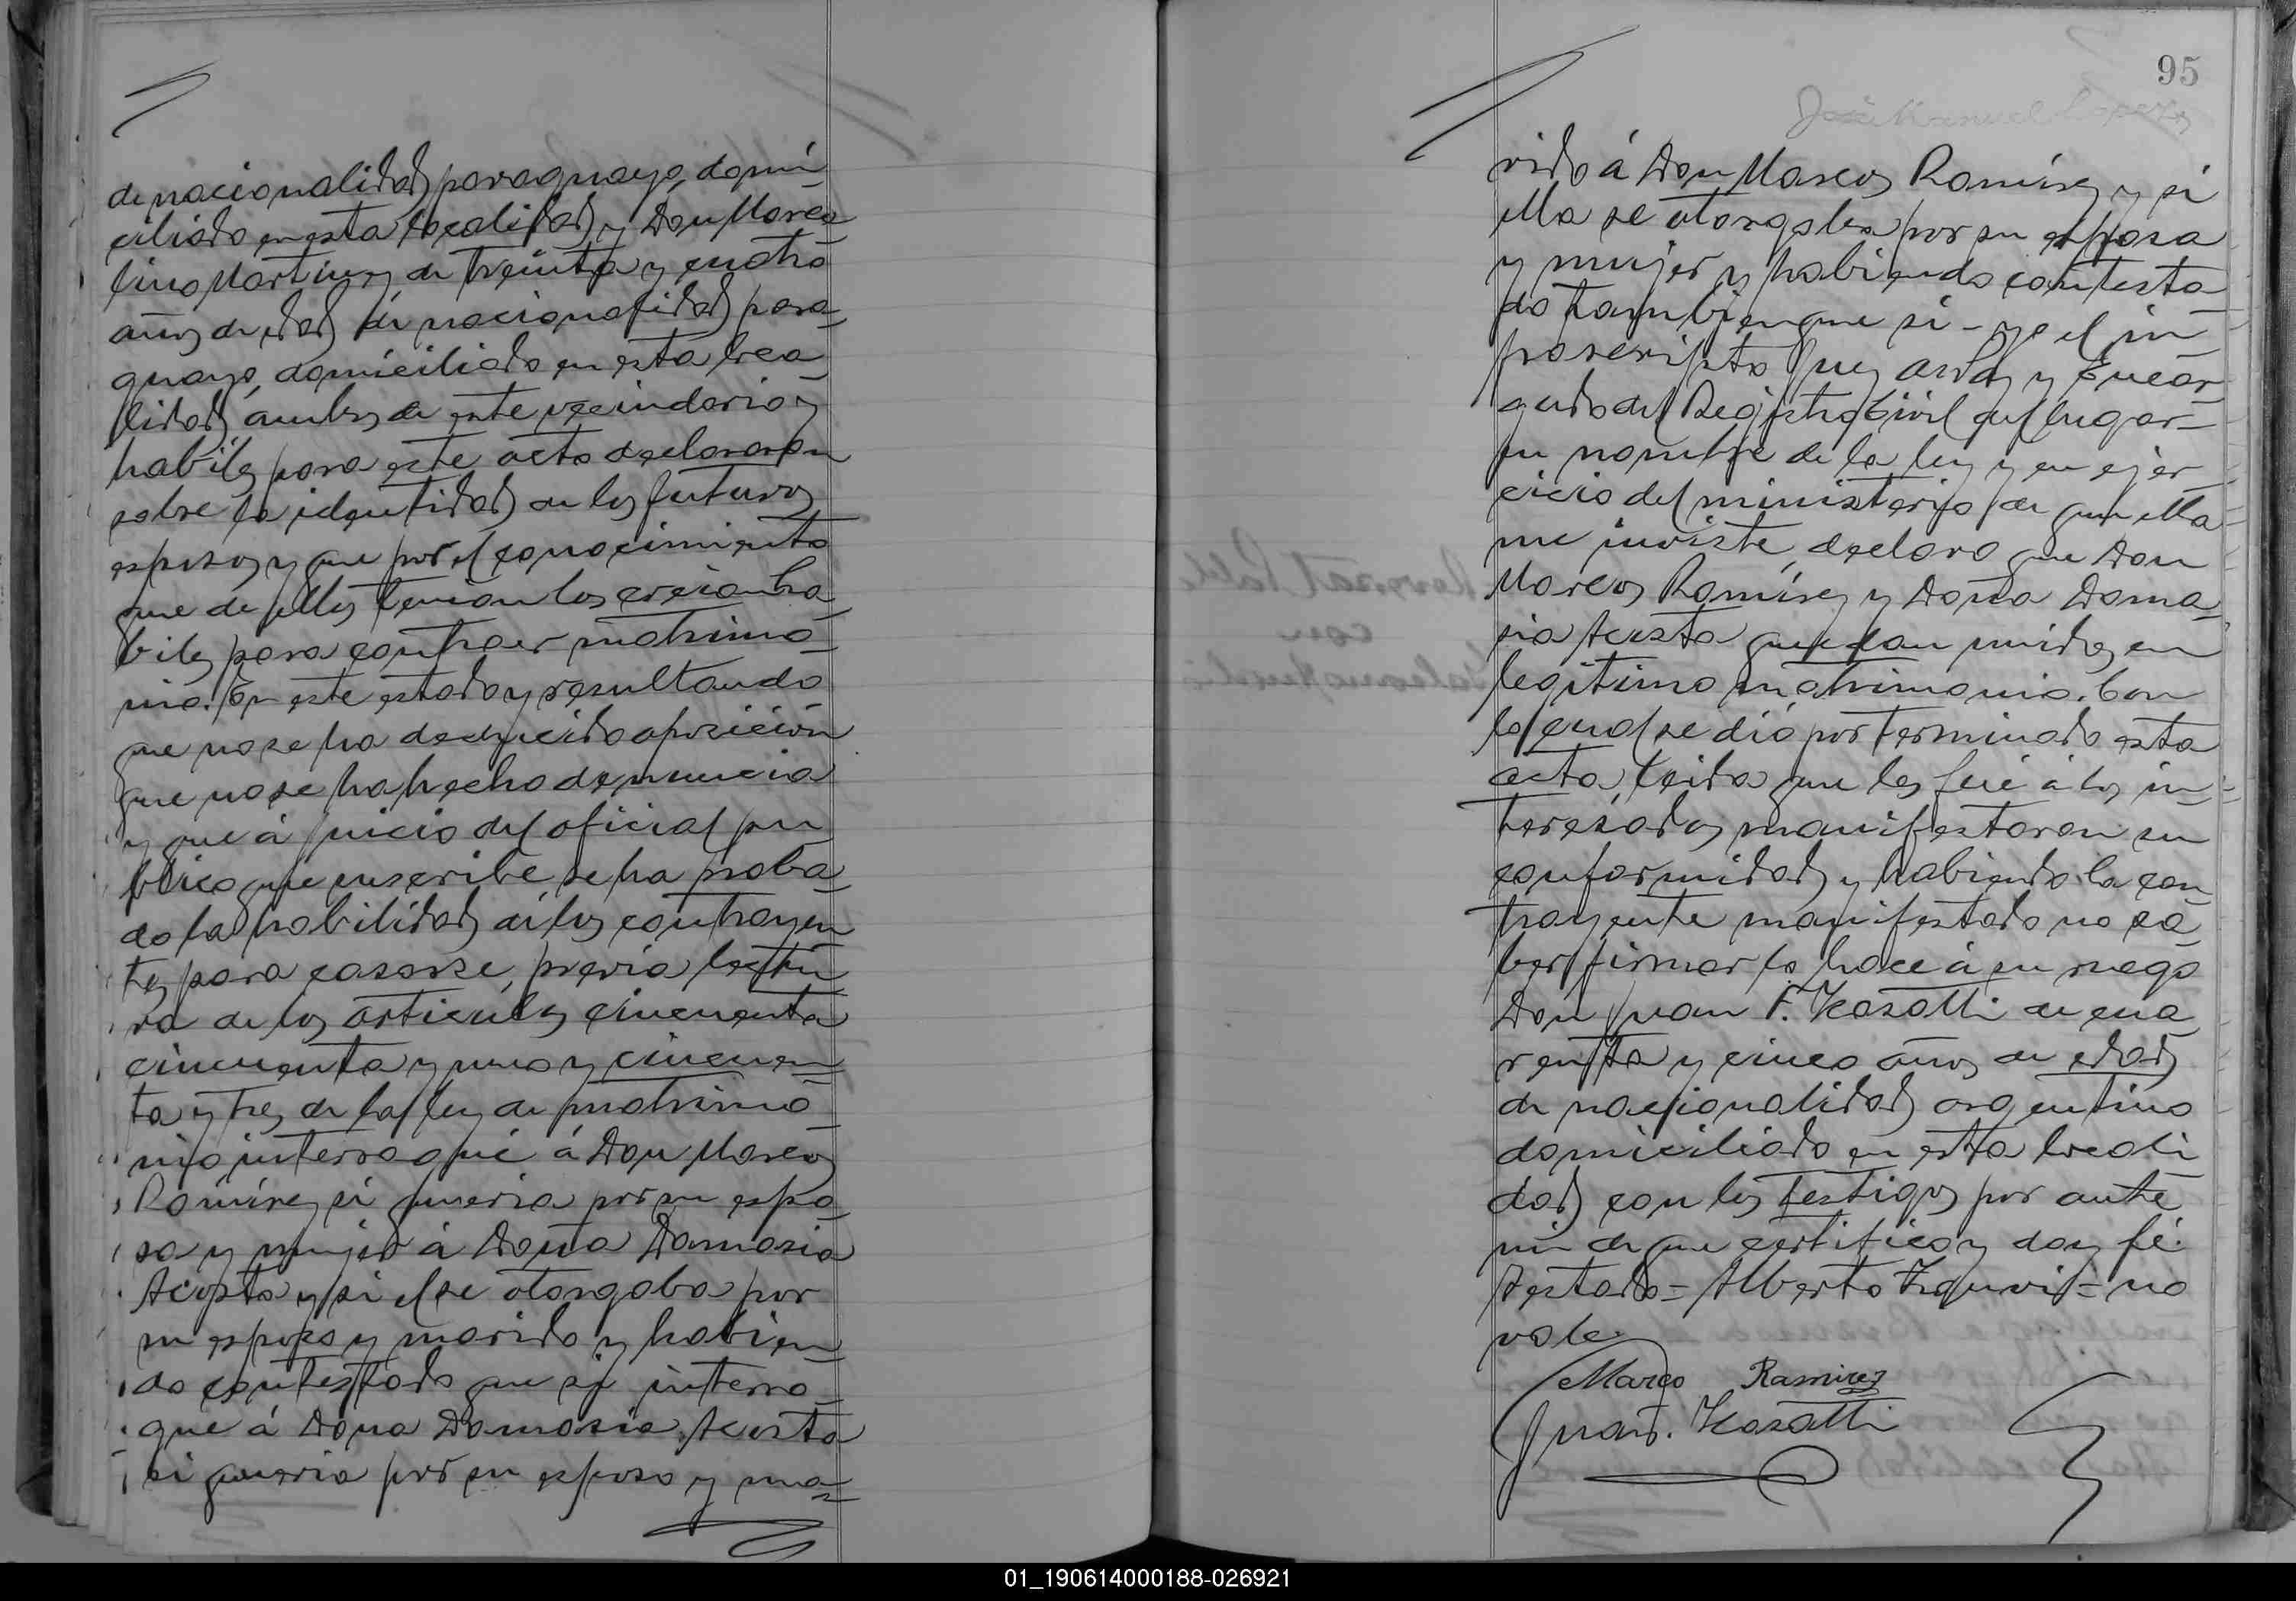 de nacionalidad paraguayo, domi-
ciliado en esta localidad y Don Marce-
lino Martinez de treinta y cuatro
años de edad de nacionalidad para-
guayo, domiciliado en esta loca-
lidad, ambos de este vecindario y
habiles para este acto declararon
sobre la identidad de los futuros
esposos y que por el conocimiento
que de ellos tenian los creian ha-
biles para contraer matrimo-
nio. En este estado y resultando
que no se ha deducido oposición
que no se ha hecho denuncia
y que á juicio del oficial pu-
blico que suscribe se ha proba-
do la habilidad de los contrayen-
tes para casarse, previa lectu-
ra de los articulos cincuenta
cincuenta y uno y cincuen-
ta y tres de la ley de matrimo-
nio interrogué á Don Marcos
Ramírez si queria por su espo-
sa y mujer á Doña Damasia
Acosta y si el se otorgaba por
su esposo y marido y habien-
do contestado que si interro-
gue á Doña Damasia Acosta
si queria por su esposo y ma-
95
José Manuel Lopez
rido á Don Marcos Ramírez y si
ella se otorgaba por su esposa
y mujer y habiendo contesta-
do tambien que si - yo el in-
frascripto Juez de Paz y Encar-
gado del Registro Civil del lugar -
en nombre de la ley y en ejer-
cicio del ministerio de que ella
me inviste, declaro que Don
Marcos Ramírez y Doña Dama-
sia Acosta quedan unidos en
legitimo matrimonio. Con
lo cual se dió por terminado esta
acta, leida que les fué á los in-
teresados manifestaron su
conformidad y habiendo la con-
trayente manifestado no sa-
ber firmar lo hace á su ruego
Don Juan F. Kasatti de cua-
renta y cinco años de edad
de nacionalidad argentino
domiciliado en esta locali-
dad con los testigos por ante
mi de que certifico y doy fé.
Testado = Alberto = no
vale.
Marco Ramirez
Juan F. Kasatti
01_190614000188-026921